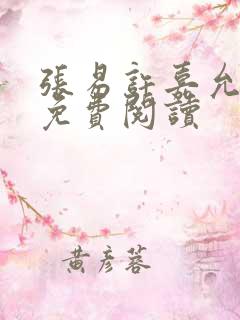 張易許嘉允
免費閱讀
黃彥蓉